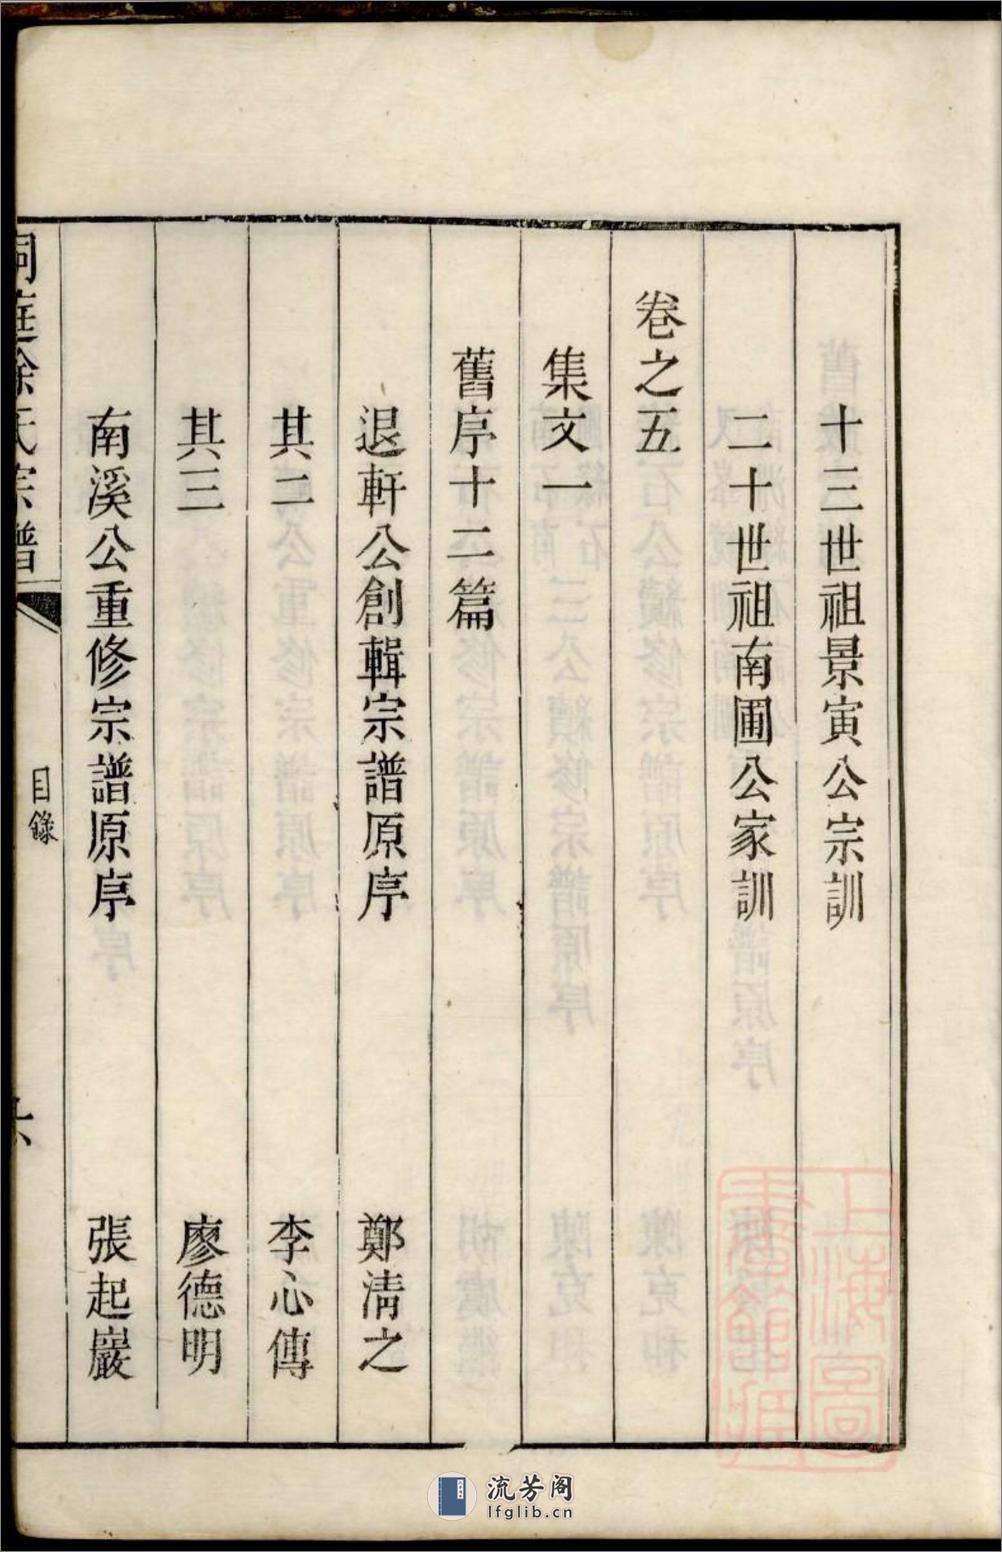 十三世祖景寅公宗訓
二十世祖南圃公家訓
卷之五
集文一
舊序十二篇
退軒公創輯宗譜原序 鄭清之
其二 李心傳
其三 廖德明
南溪公重修宗譜原序 張起巖
洞庭徐氏宗譜 目錄 六
上海圖書館藏
流芳阁
lfglib.cn